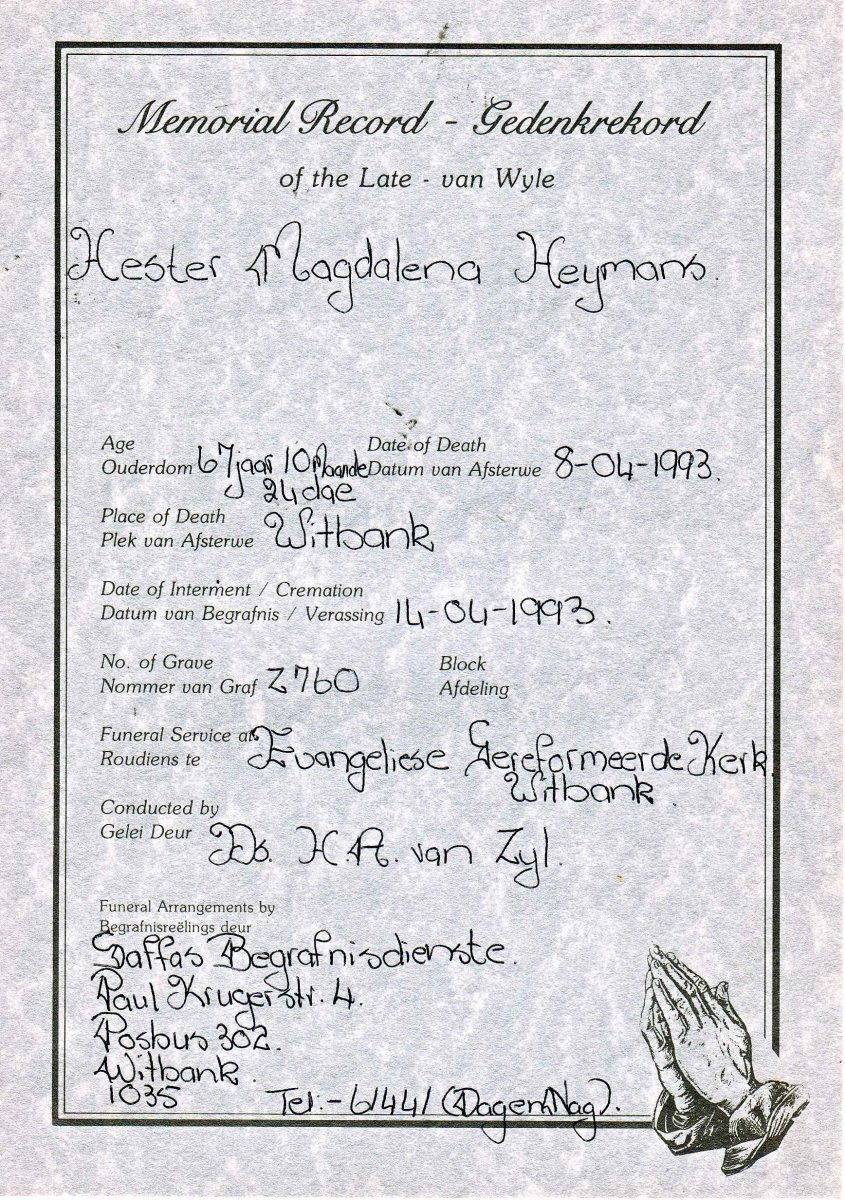 Memorial Record - Gedenkrekord
of the Late - van Wyle
Hester Magdalena Heymans.
Age
Ouderdom 67 jaar 10 Maande
24 dae
Date of Death
Datum van Afsterwe 8-04-1993.
Place of Death
Plek van Afsterwe Witbank
Date of Interment / Cremation
Datum van Begrafnis / Verassing 14-04-1993.
No. of Grave
Nommer van Graf Z760
Block
Afdeling
Funeral Service at
Roudiens te Evangeliese Gereformeerde Kerk
Witbank.
Conducted by
Gelei Deur Ds. H.A. van Zyl.
Funeral Arrangements by
Begrafnisreëlings deur
Saffas Begrafnisdienste.
Paul Krugerstr. 4.
Posbus 302.
Witbank.
1035
Tel:- 61441 (Dag en Nag).